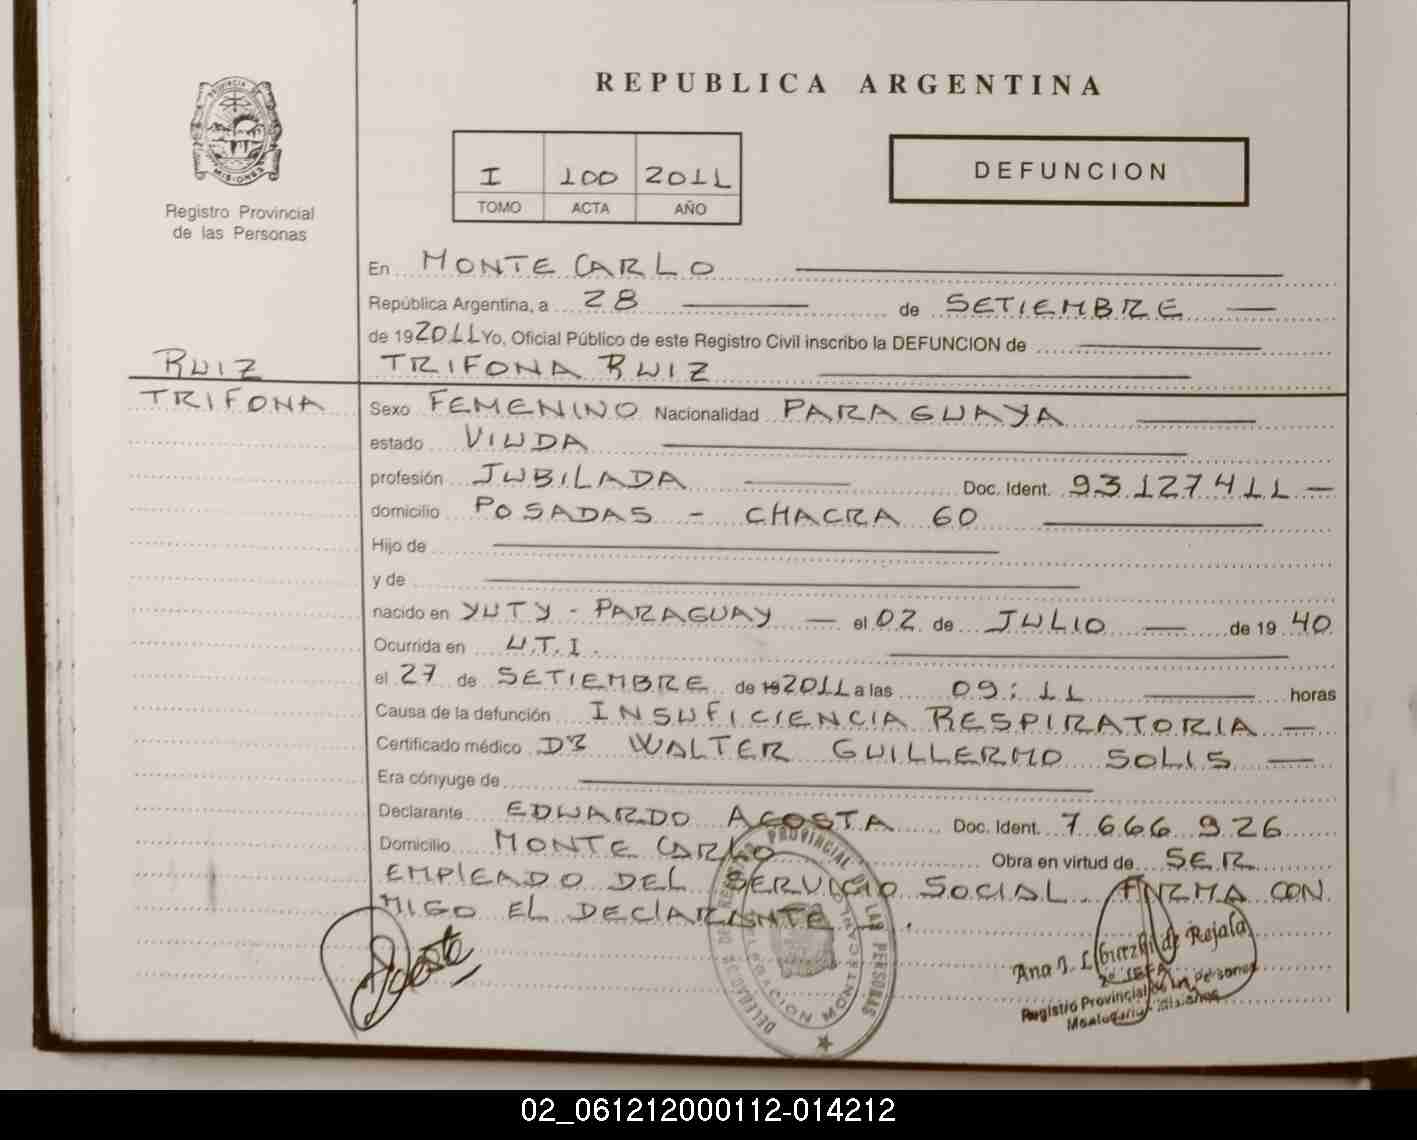 REPUBLICA ARGENTINA
PROVINCIA DE
MISIONES
Registro Provincial
de las Personas
I 100 2011
TOMO ACTA AÑO
DEFUNCION
En MONTE CARLO
República Argentina, a 28 de SETIEMBRE
de 192011 Yo, Oficial Público de este Registro Civil inscribo la DEFUNCION de
RUIZ
TRIFONA RUIZ
TRIFONA
Sexo FEMENINO Nacionalidad PARAGUAYA
estado VIUDA
profesión JUBILADA Doc. Ident. 93127411
domicilio POSADAS - CHACRA 60
Hijo de
y de
nacido en YUTY - PARAGUAY el 02 de JULIO de 19 40
Ocurrida en U.T.I.
el 27 de SETIEMBRE de 192011 a las 09:11 horas
Causa de la defunción INSUFICIENCIA RESPIRATORIA
Certificado médico Dr WALTER GUILLERMO SOLIS
Era cónyuge de
Declarante EDUARDO ACOSTA Doc. Ident. 7 666 926
Domicilio MONTE CARLO Obra en virtud de SER
EMPLEADO DEL SERVICIO SOCIAL. FIRMA CON
MIGO EL DECLARANTE.
Acosta
PROVINCIAL DE LAS PERSONAS
Ana de Rejala
Registro Provincial de las Personas
02_061212000112-014212